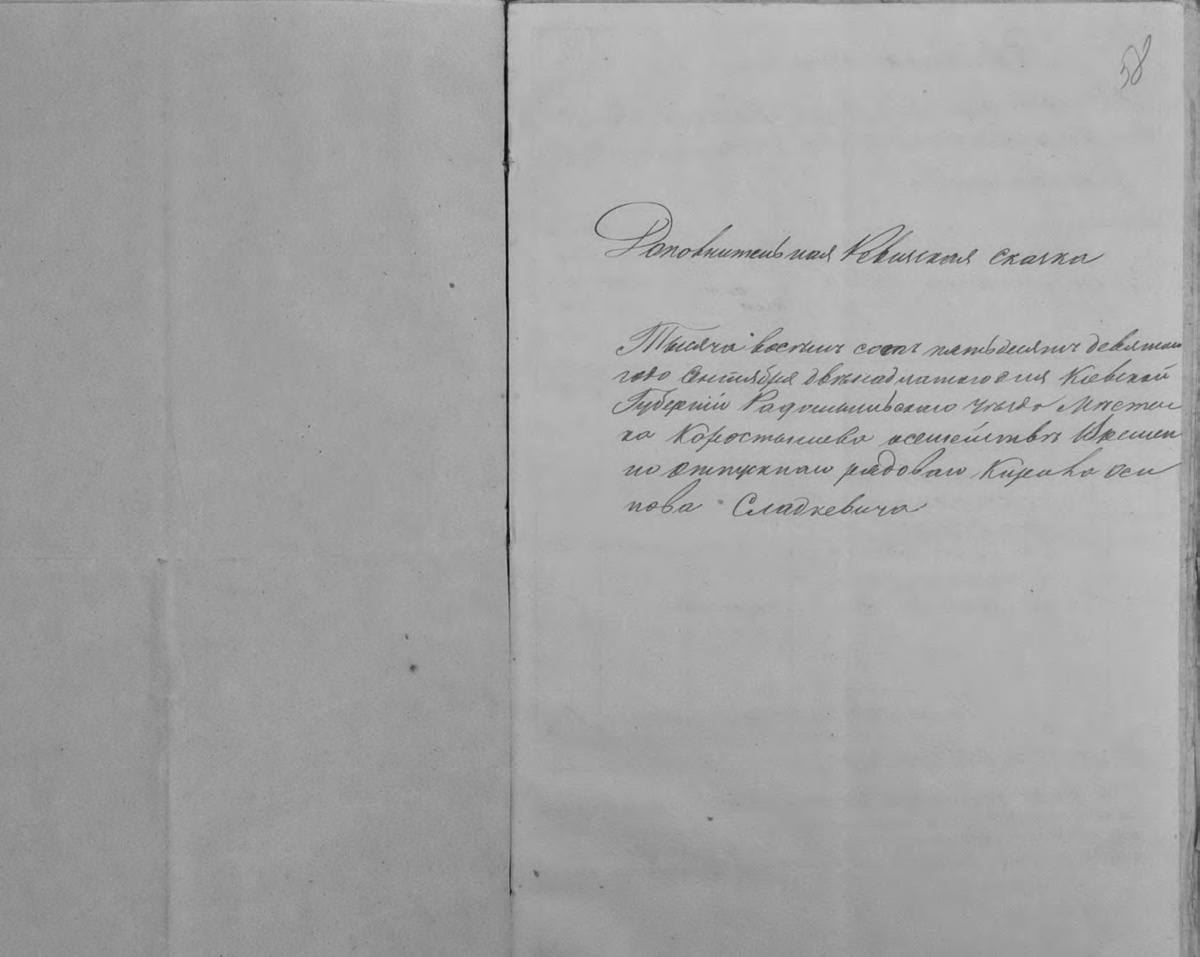 58
Дополнительная Ревизская сказка
Тысяча восемь сотъ пятьдесятъ девятаго
года Сентября двенадцатого дня Кіевской
Губерніи Радомысльскаго уезда Местеч
ка Коростышева о семействе Времен
но отпускнаго рядоваго Оси
пова Сладкевича